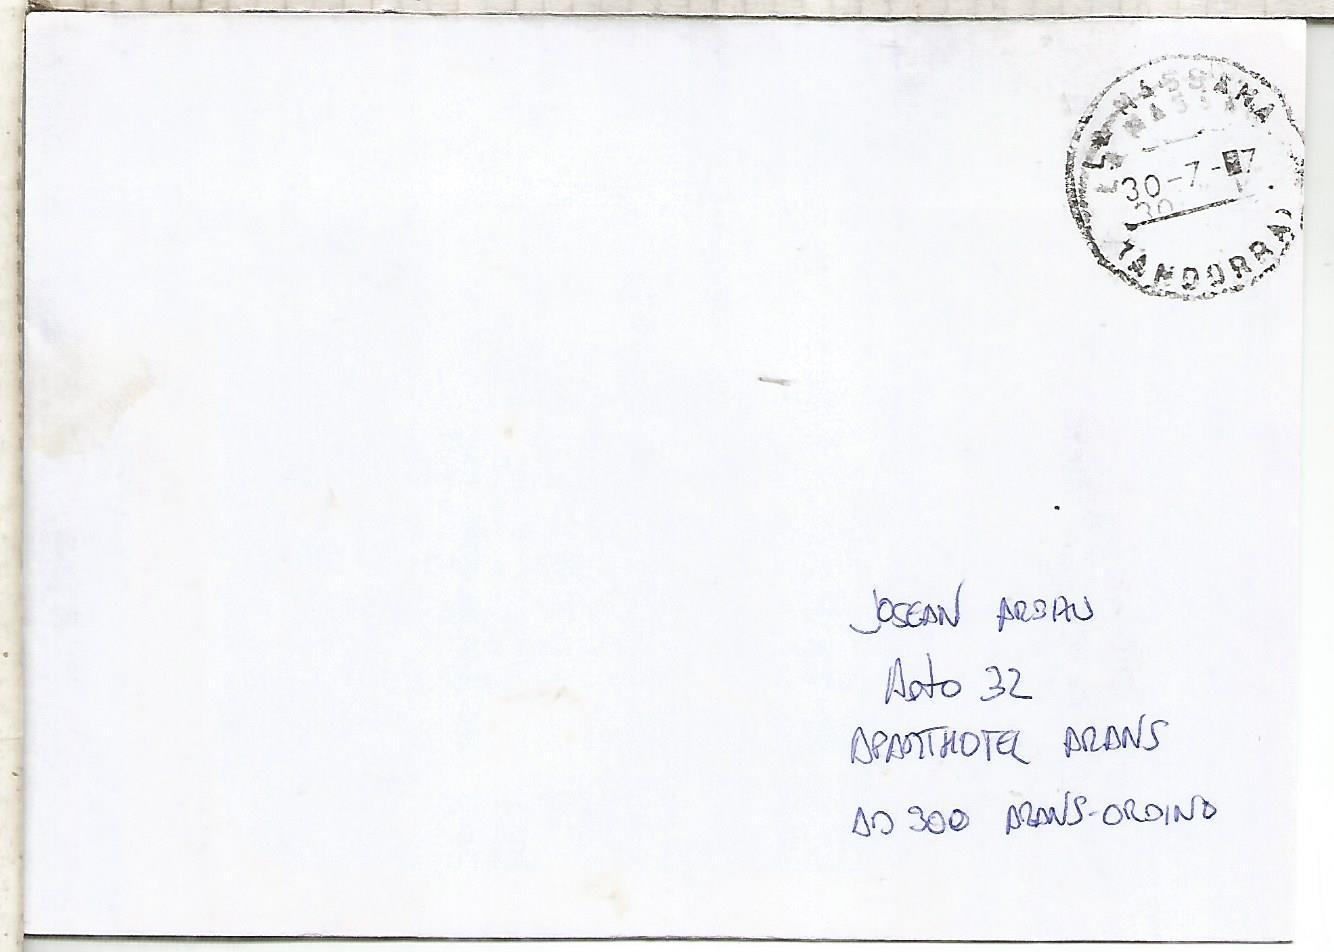 LA MASSANA
30-7-
(ANDORRA)
JOSEAN ARBAU
Apto 32
APARTHOTEL ARANS
AD 300 ARANS-ORDINO